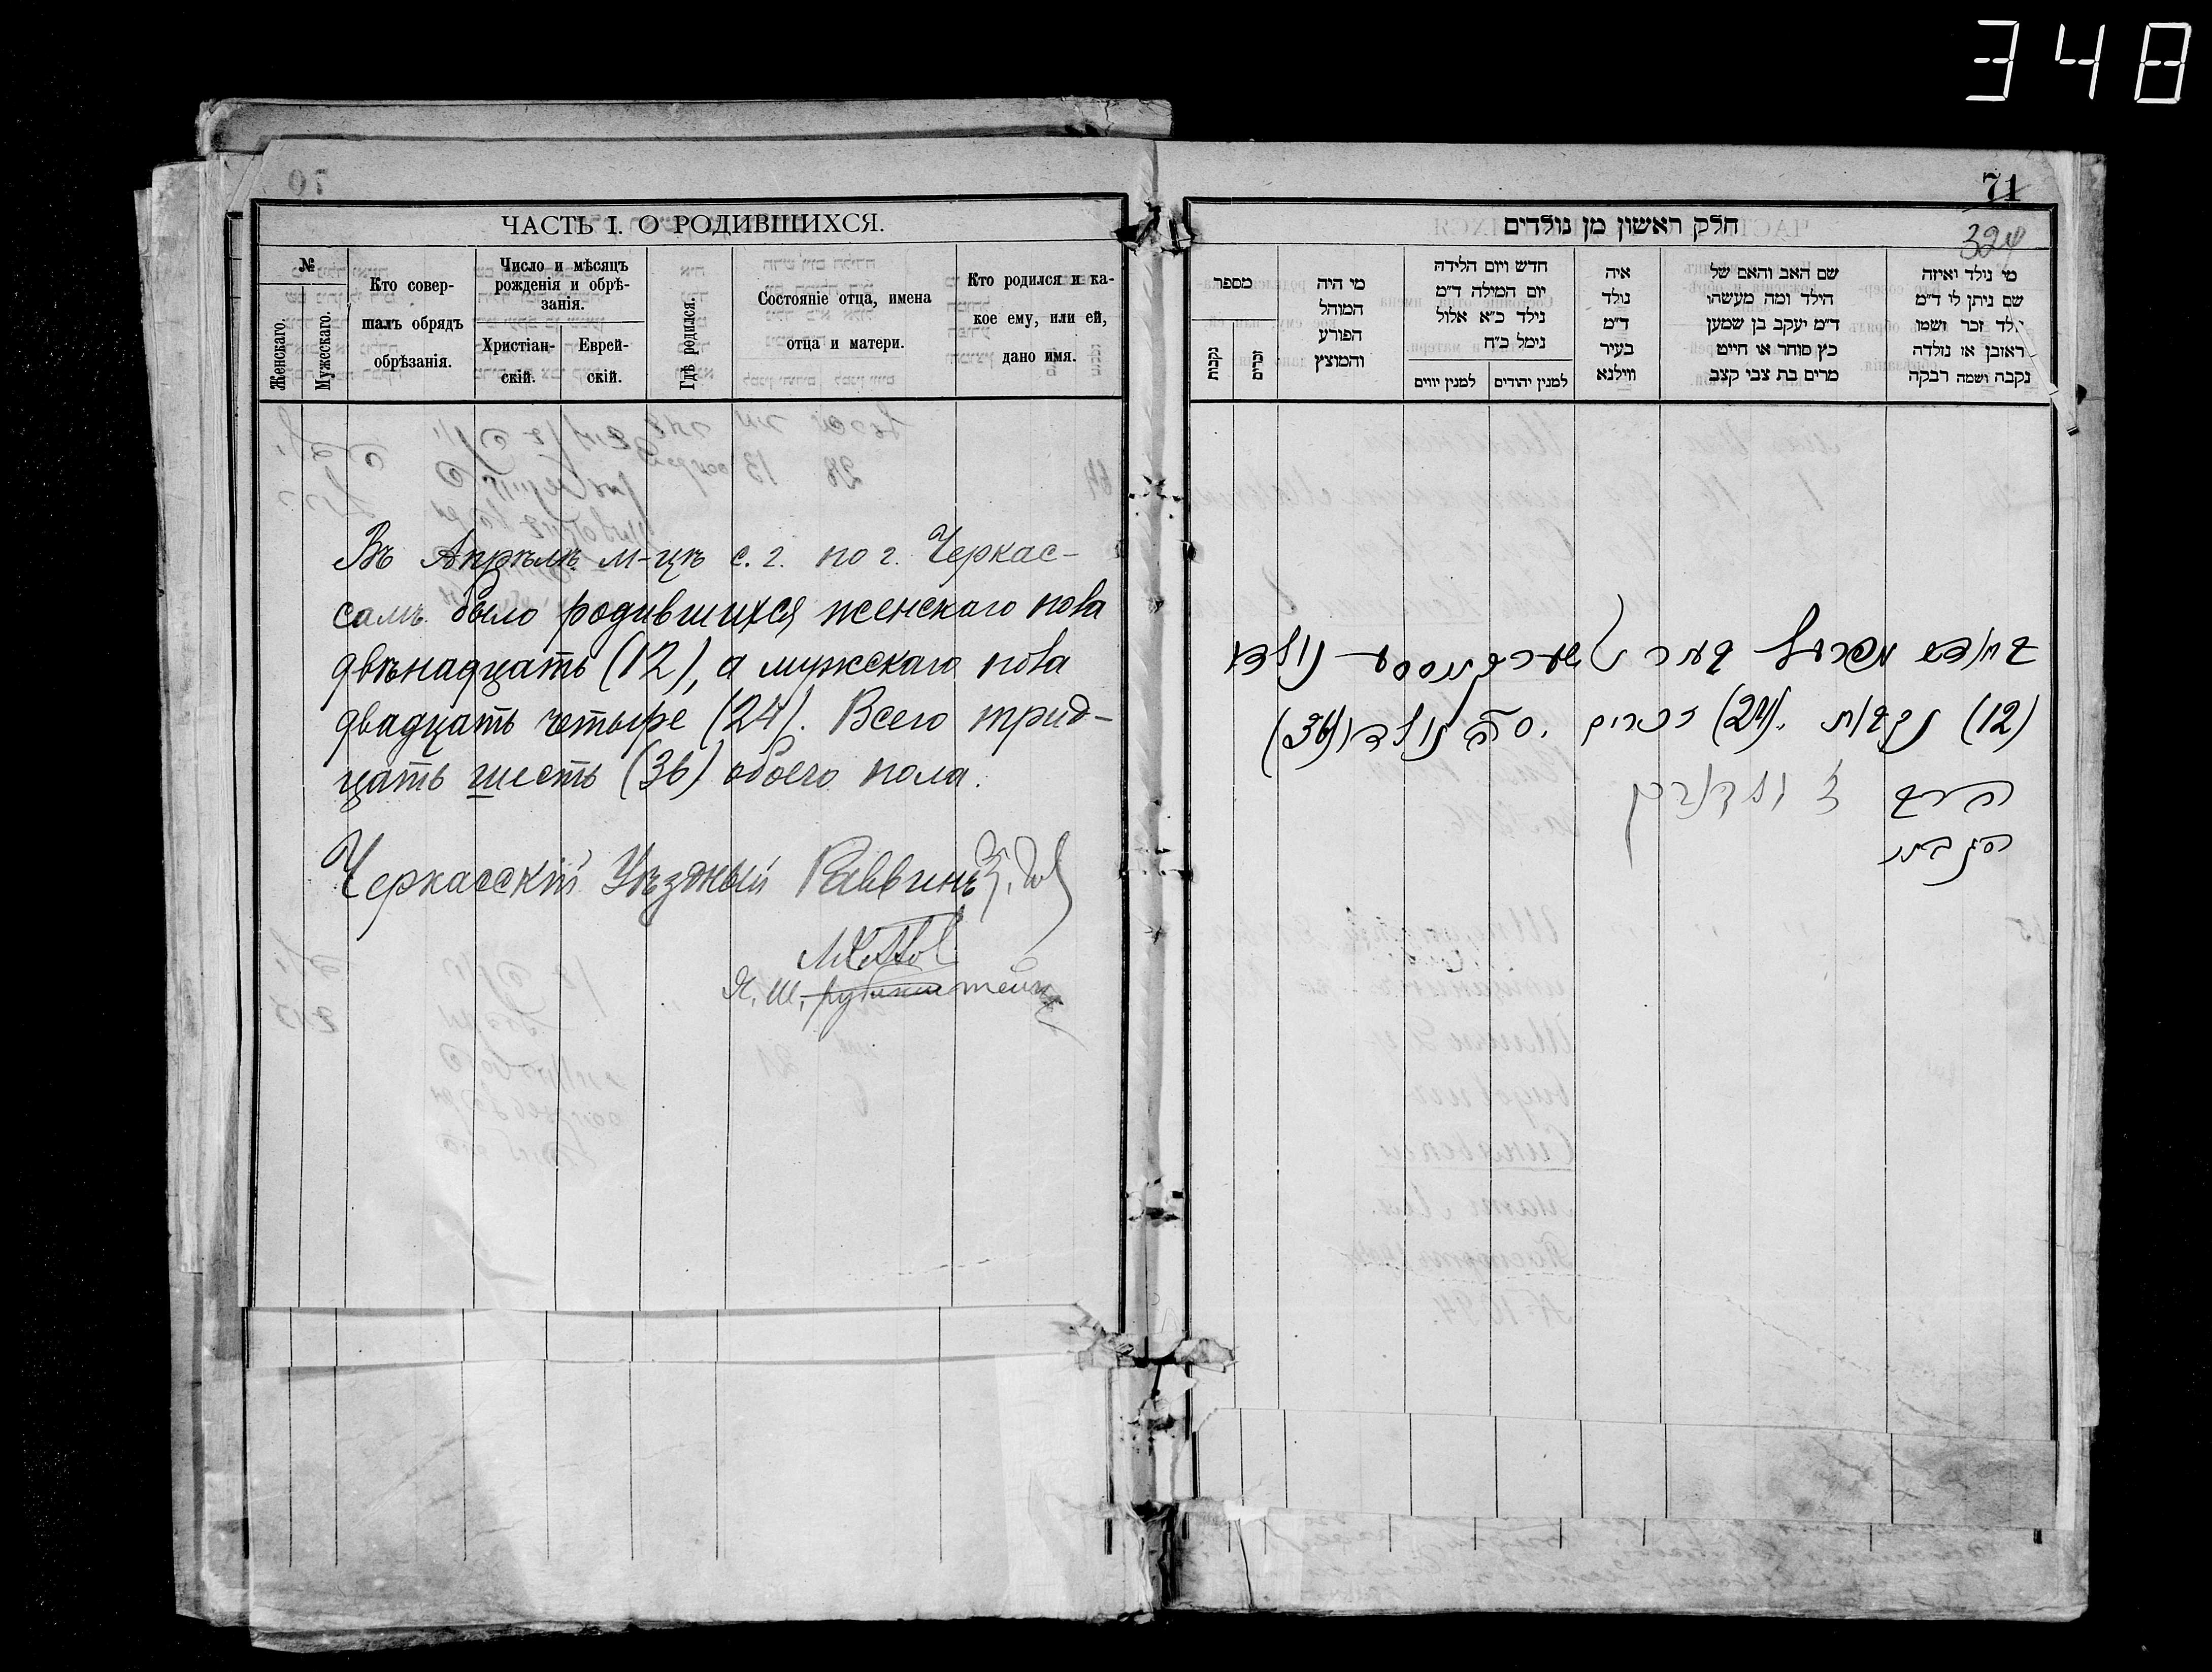 348
ЧАСТЬ I. О РОДИВШИХСЯ.
№
Женскаго.
Мужескаго.
Кто совер-
шалъ обрядъ
обрѣзанія.
Число и мѣсяцъ
рожденія и обрѣ-
занія.
Христіан-
скій.
Еврей-
скій.
Гдѣ родился.
Состояніе отца, имена
отца и матери.
Кто родился и ка-
кое ему, или ей,
дано имя.
Въ Апрѣлѣ м-цѣ с. г. по г. Черкас-
самъ было родившихся женскаго пола
двѣнадцать (12), а мужскаго пола
двадцать четыре (24). Всего трид-
цать шесть (36) обоего пола.
Черкасскій Уѣздный Раввинъ
71
324
חלק ראשון מן נולדים
מי נולד ואיזה
שם ניתן לו ד״מ
ילד זכר ושמו
ראובן או נולדה
נקבה ושמה רבקה
שם האב והאם של
הילד ומה מעשהו
ד״מ יעקב בן שמעון
כץ סוחר או חייט
מרים בת צבי קצב
איה
נולד
ד״מ
בעיר
ווילנא
חדש ויום הלידה
יום המילה ד״מ
נילד כ״א אלול
נימל כ״ח
למנין יהודים
למנין יווים
מי היה
המוהל
הפורע
והמוצץ
מספר
זכרים
נקבות
בחודש אפריל בעיר נולדו
(12) נקבות (24) זכרים . ס״ה נולדו (36)
הרב